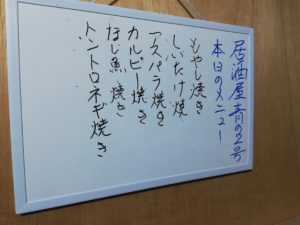 居酒屋青の2号
本日のメニュー
もやし焼き
しいたけ焼
アスパラ焼き
カルビー焼き
ほし魚焼き
トントロネギ焼き